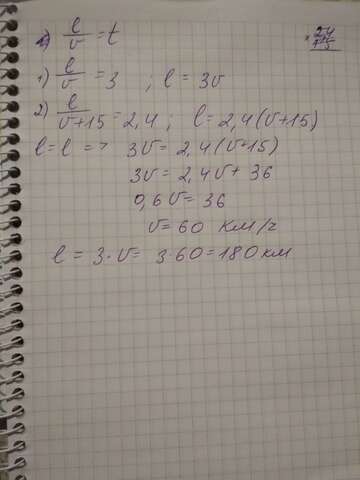 l/v = t
× 24
15
1) l/v = 3 ; l = 3v
2) l/v+15 = 2,4 ; l = 2,4(v+15)
l = l => 3v = 2,4(v+15)
3v = 2,4v + 36
0,6v = 36
v = 60 км/г
l = 3·v = 3·60 = 180 км